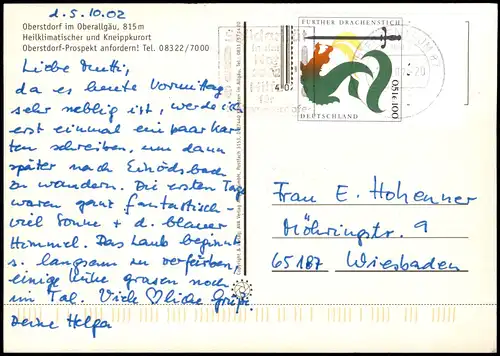 d. 5.10.02
Oberstdorf im Oberallgäu, 815m
Heilklimatischer und Kneippkurort
Oberstdorf-Prospekt anfordern! Tel. 08322/7000
Liebe Mutti,
da es heute Vormittag
sehr neblig ist, werde ich
erst einmal ein paar Kar
ten schreiben, um dann
später nach Einödsbach
zu wandern. Die ersten Tage
waren ganz fantastisch -
viel Sonne + d. blauer
Himmel. Das Laub beginnt
s. langsam zu verfärben,
einige Kühe grasen noch
im Tal. Viele ♡liche Grüße
Deine Helga
FURTHER DRACHENSTICH
0,51€ 100
DEUTSCHLAND
für
Frau E. Hohenner
Möhringstr. 9
65187 Wiesbaden